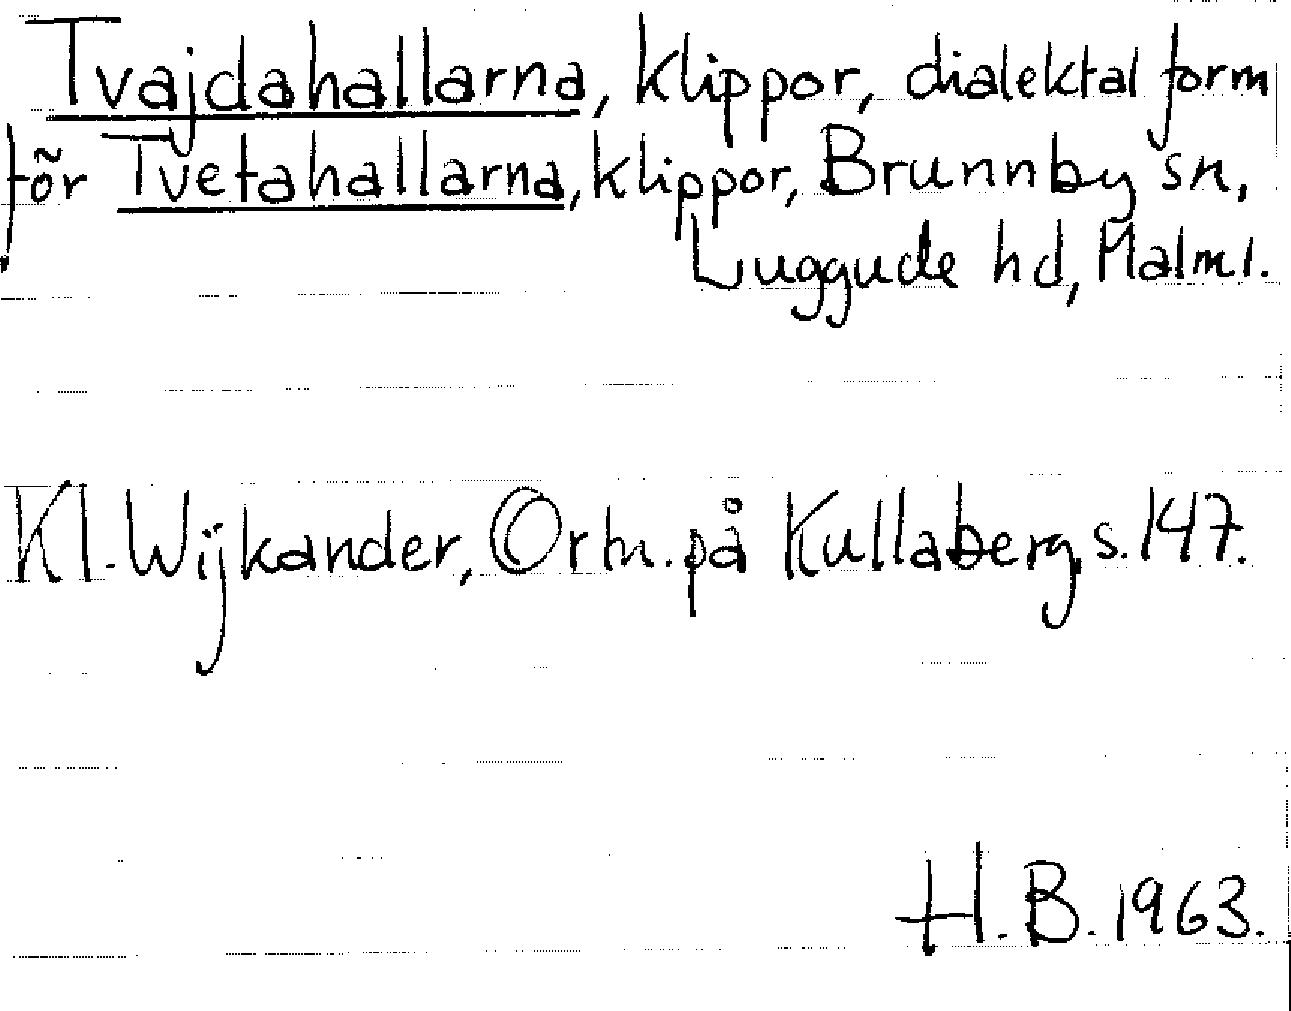 Tvajdahallarna, klippor, dialektal form
för Tvetahallarna, klippor, Brunnby sn,
Luggude hd, Malml.
Kl. Wijkander, Ortn. på Kullaberg, s. 147.
H. B. 1963.